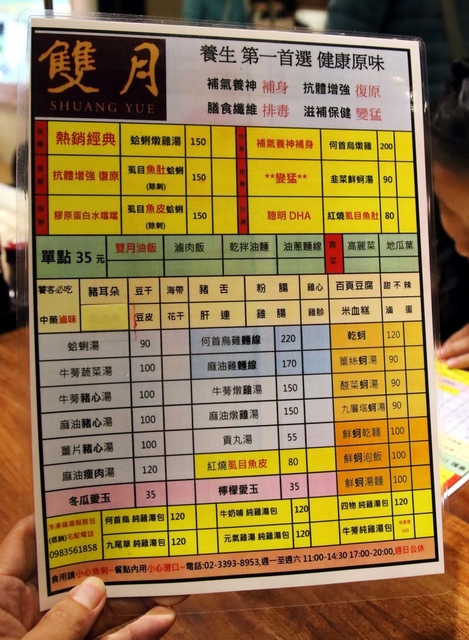 雙月
SHUANG YUE
養生 第一首選 健康原味
補氣養神 補身 抗體增強 復原
膳食纖維 排毒 滋補保健 變猛
熱銷經典 蛤蜊燉雞湯 150 補氣養神補身 何首烏燉雞 200
抗體增強 復原 虱目魚肚蛤蜊 (除刺) 150 **變猛** 韭菜鮮蚵湯 90
膠原蛋白水噹噹 虱目魚皮蛤蜊 (除刺) 150 聰明 DHA 紅燒虱目魚肚 80
單點 35 元 雙月油飯 滷肉飯 乾拌油麵 油蔥麵線 高麗菜 地瓜葉
饕客必吃 豬耳朵 豆干 海帶 豬舌 粉腸 雞心 百頁豆腐 甜不辣
中藥滷味 豆皮 花干 肝連 雞腸 雞胗 米血糕 滷蛋
蛤蜊湯 90 何首烏雞麵線 220 乾蚵 120
牛蒡蔬菜湯 100 麻油雞麵線 170 薑絲蚵湯 90
牛蒡豬心湯 100 牛蒡燉雞湯 150 酸菜蚵湯 90
麻油豬心湯 100 麻油燉雞湯 150 九層塔蚵湯 90
薑片豬心湯 100 貢丸湯 55 鮮蚵乾麵 100
麻油瘦肉湯 120 紅燒虱目魚皮 80 鮮蚵泡飯 100
冬瓜愛玉 35 檸檬愛玉 35 鮮蚵湯麵 100
冷凍雞湯賴賴包 何首烏 純雞湯包 120 牛奶埔 純雞湯包 120 四物 純雞湯包 120
(低銷)宅配電話
0983561858 九尾草 純雞湯包 120 元氣雞湯 純雞湯包 120 牛蒡純雞湯包
食用請小心魚刺~餐點內用小心燙口~電話:02-3393-8953,週一至週六 11:00-14:30 17:00-20:00,週日公休